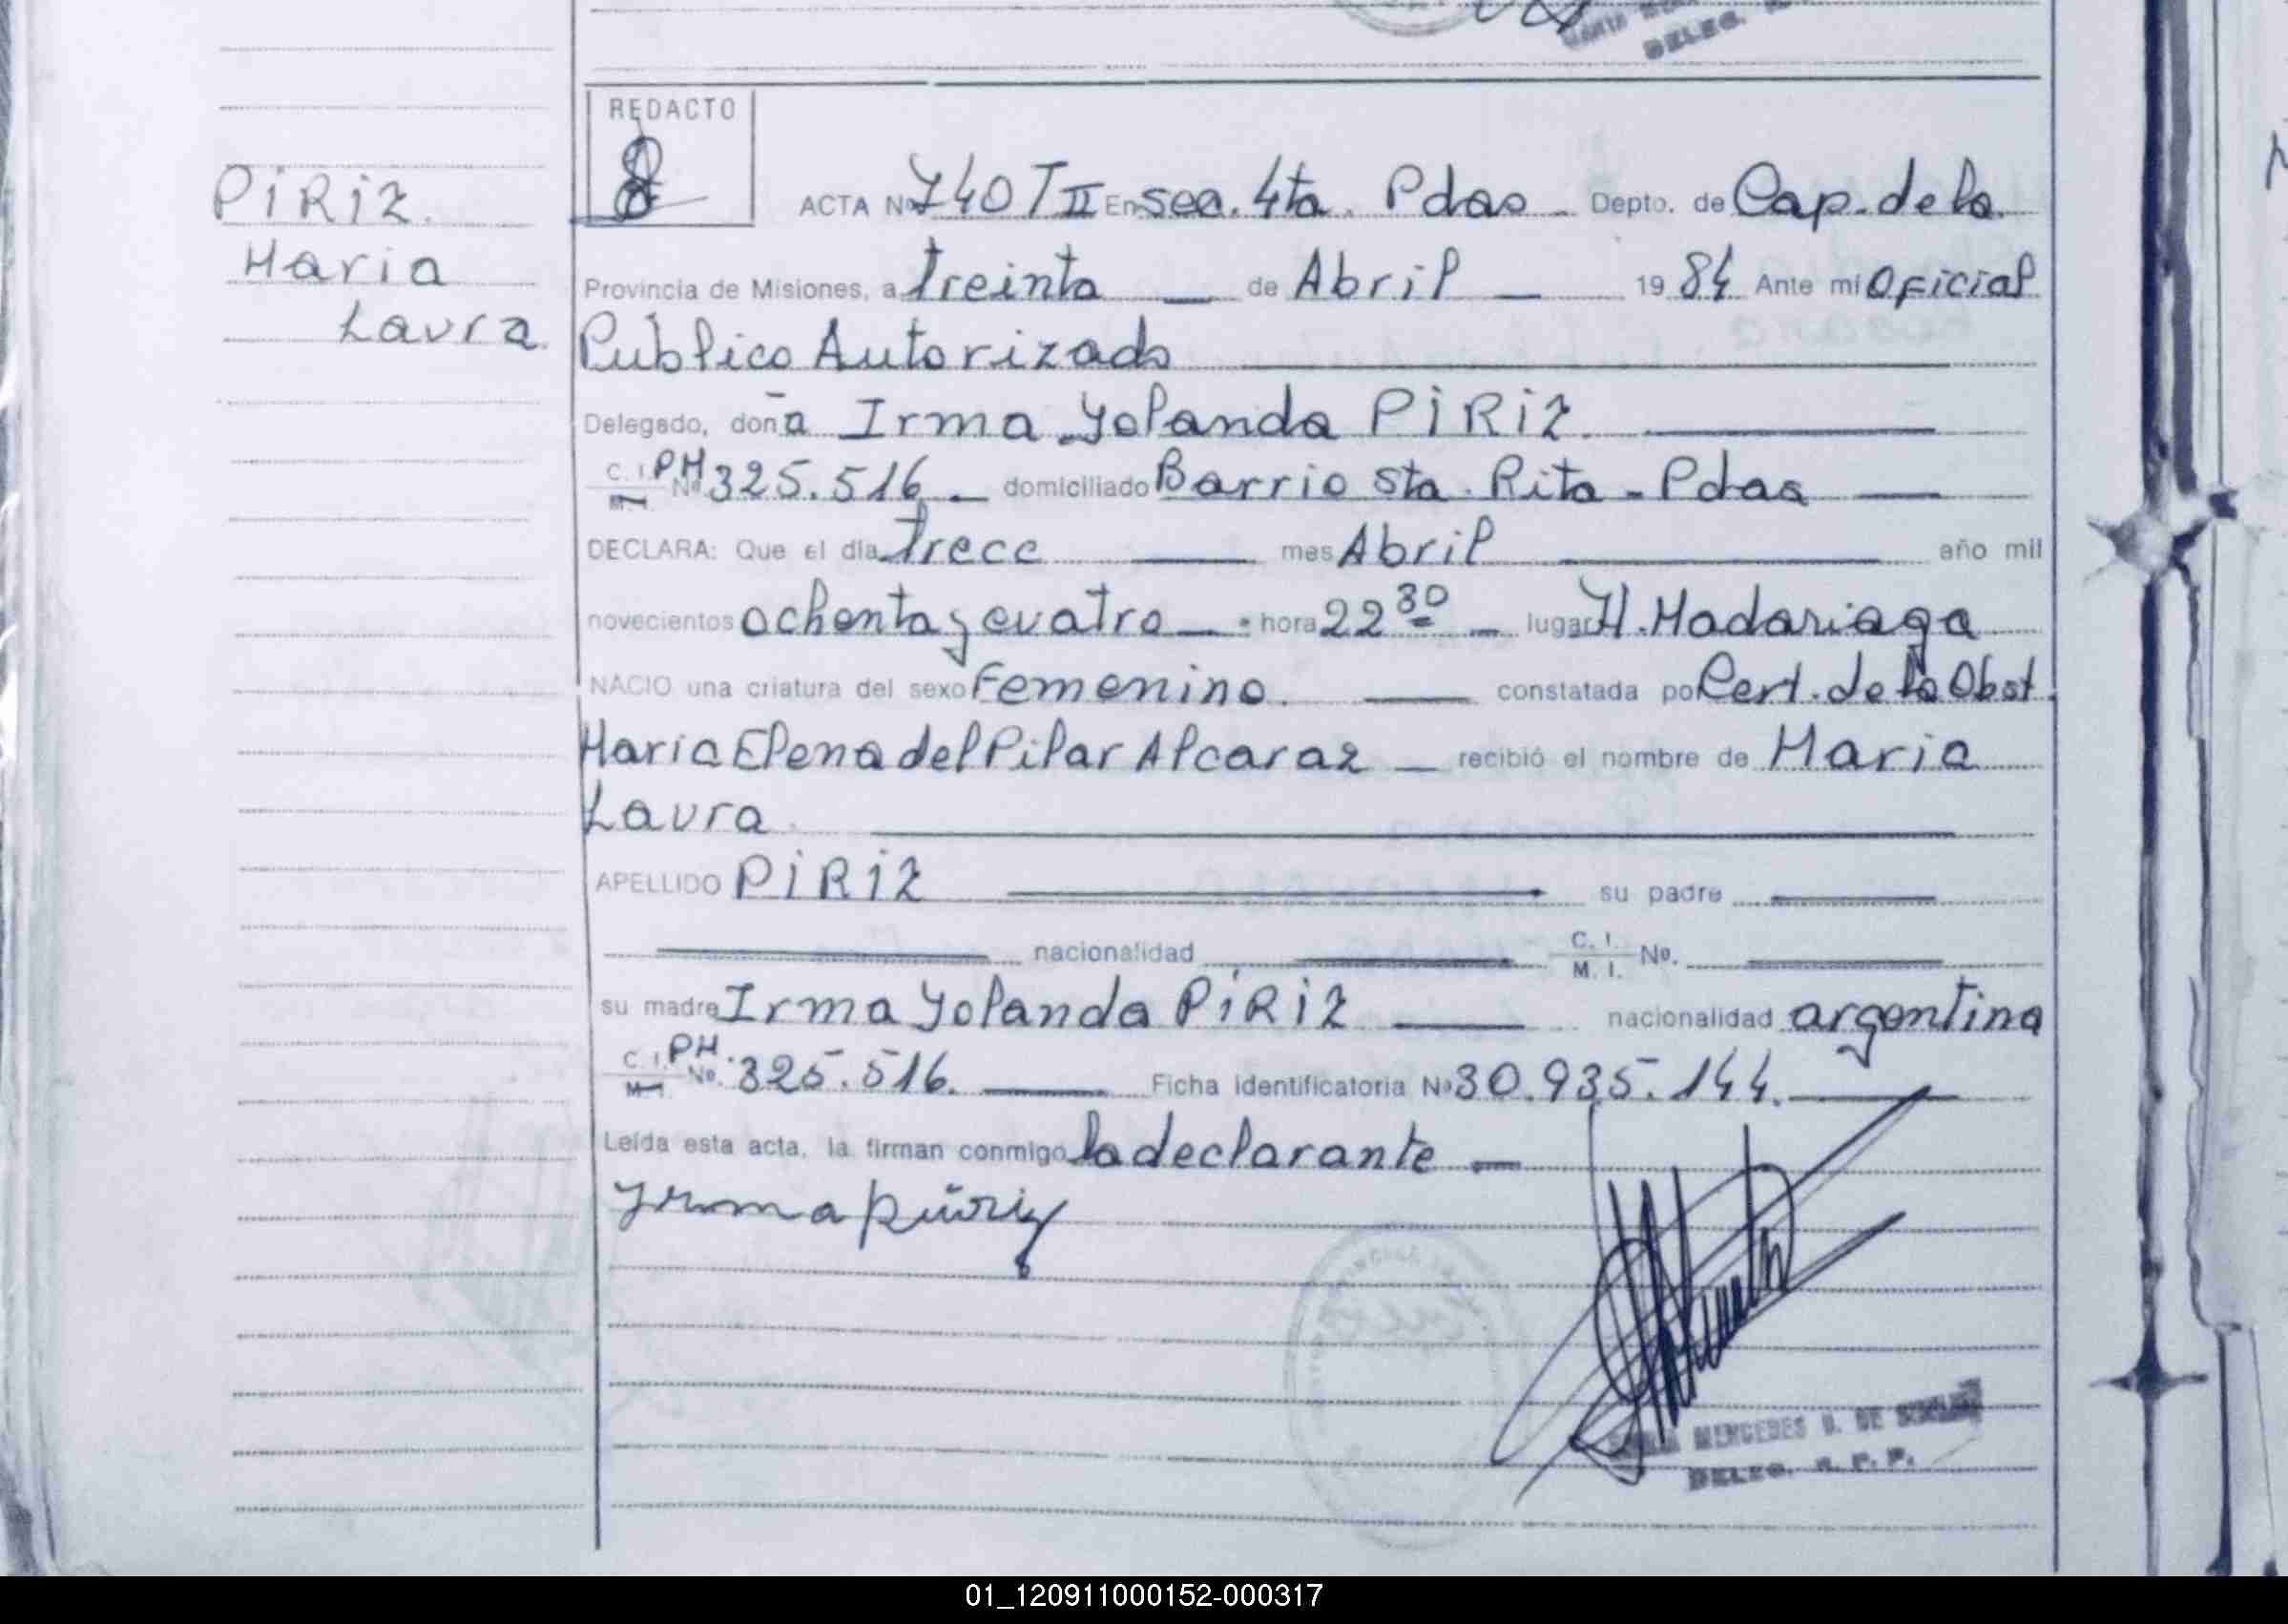 DELEG.
REDACTO
PIRIZ.
Maria
Laura.
ACTA Nº 740 T II En sec. 4ta. Pdas Depto. de Cap. de la
Provincia de Misiones, a treinta de Abril 1984 Ante mí Oficial
Publico Autorizado
Delegado, doña Irma Yolanda PIRIZ.
C. I. PM Nº 325.516 domiciliado Barrio Sta. Rita - Pdas
DECLARA: Que el día trece mes Abril año mil
novecientos ochenta y cuatro hora 22 30 lugar H. Madariaga
NACIO una criatura del sexo Femenino. constatada por Cert. de la Obst.
Maria Elena del Pilar Alcaraz recibió el nombre de Maria
Laura.
APELLIDO PIRIZ su padre
nacionalidad C. I. M. I. No.
su madre Irma Yolanda PIRIZ nacionalidad argentina
C. I. PM. Nº. 325.516. Ficha identificatoria Nº 30.935.144.
Leída esta acta, la firman conmigo la declarante
Yrma piriz
MERCEDES
DELEG. R. P. P.
01_120911000152-000317